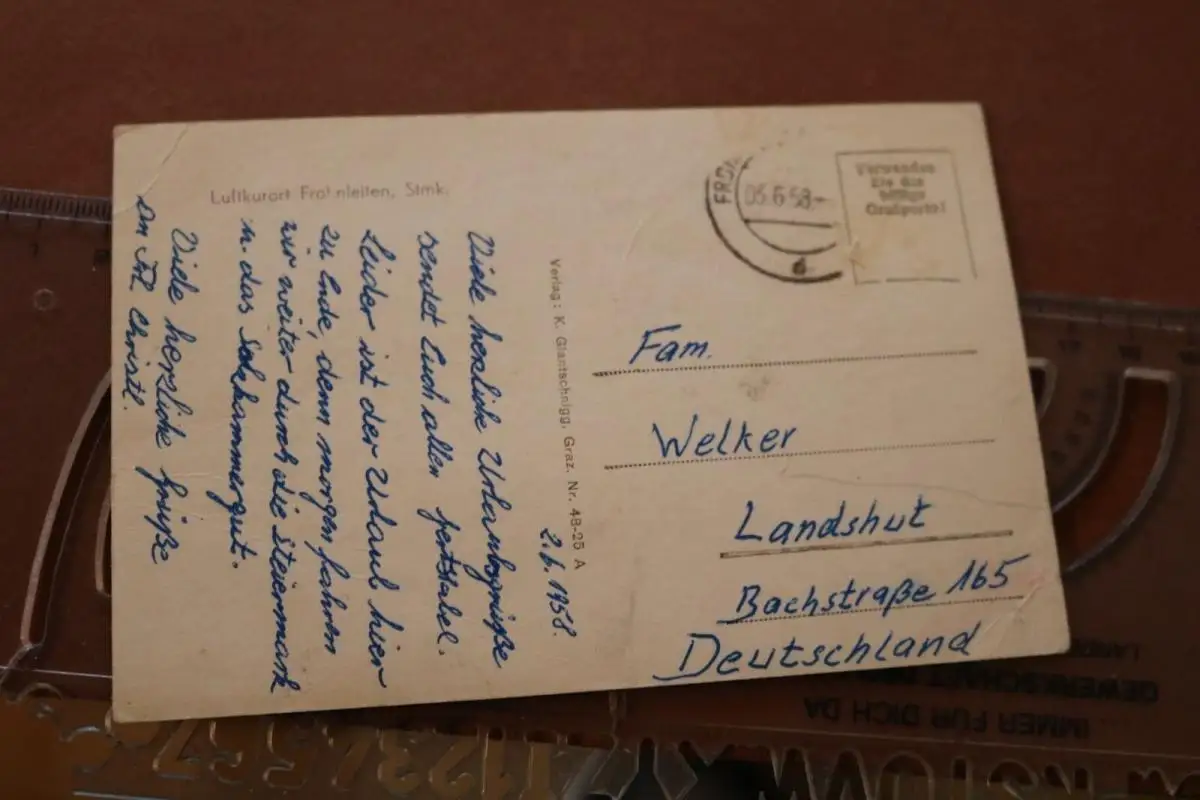 Luftkurort Frohnleiten, Stmk.
2.6.1958.
Viele herzliche Urlaubsgrüße
sendet Euch allen
Leider ist der Urlaub hier
zu Ende, denn morgen fahren
wir weiter durch die Steiermark
u. das Salzkammergut.
Viele herzliche Grüße
an Frl. Christl.
Verlag: K. Glantschnigg, Graz. Nr. 48-25 A
FRO
05.6.58-
d
Verwenden
Sie die
billige
Grußpost!
Fam.
Welker
Landshut
Bachstraße 165
Deutschland
IMMER FÜR DICH DA